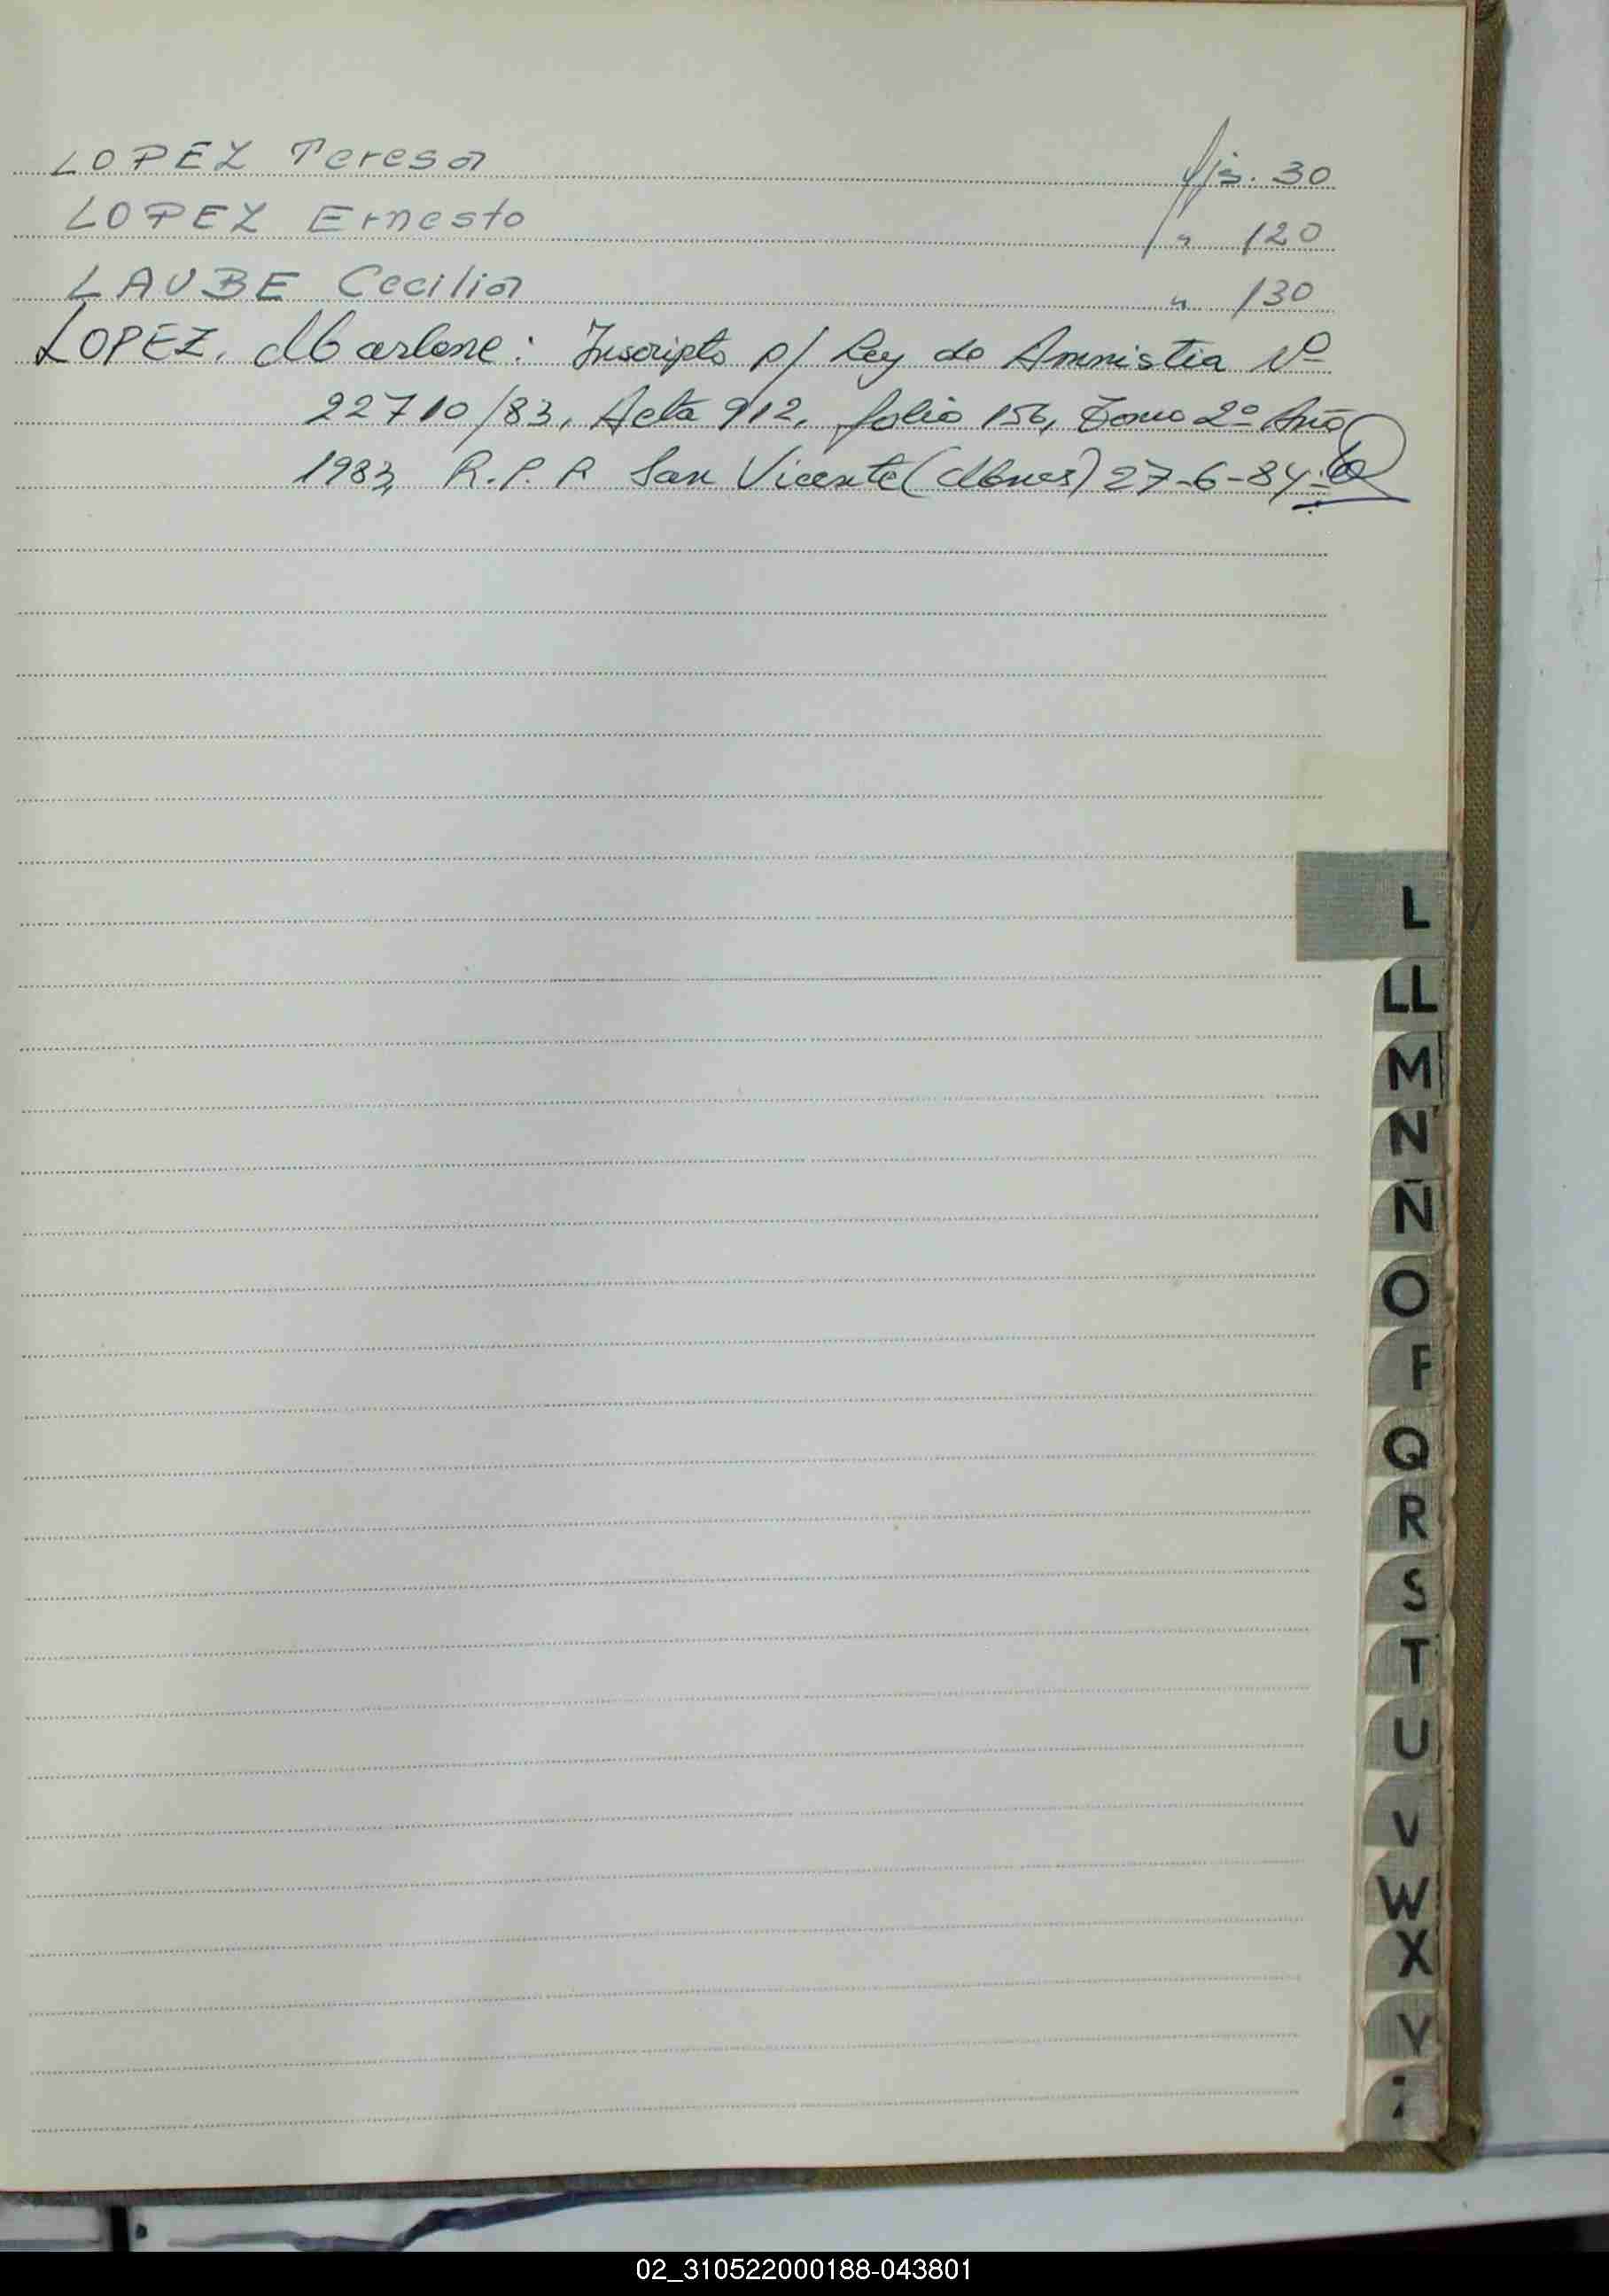 LOPEZ Teresa fjs. 30
LOPEZ Ernesto " 120
LAUBE Cecilia " 130
LOPEZ, Marlene: Inscripto p/ Ley de Amnistia Nº
22710/83, Acta 912, folio 156, Tomo 2º Año
1983, R.P.P. San Vicente (Mnes) 27-6-84.
L
LL
M
N
N
O
F
Q
R
S
T
U
V
W
X
Y
02_310522000188-043801